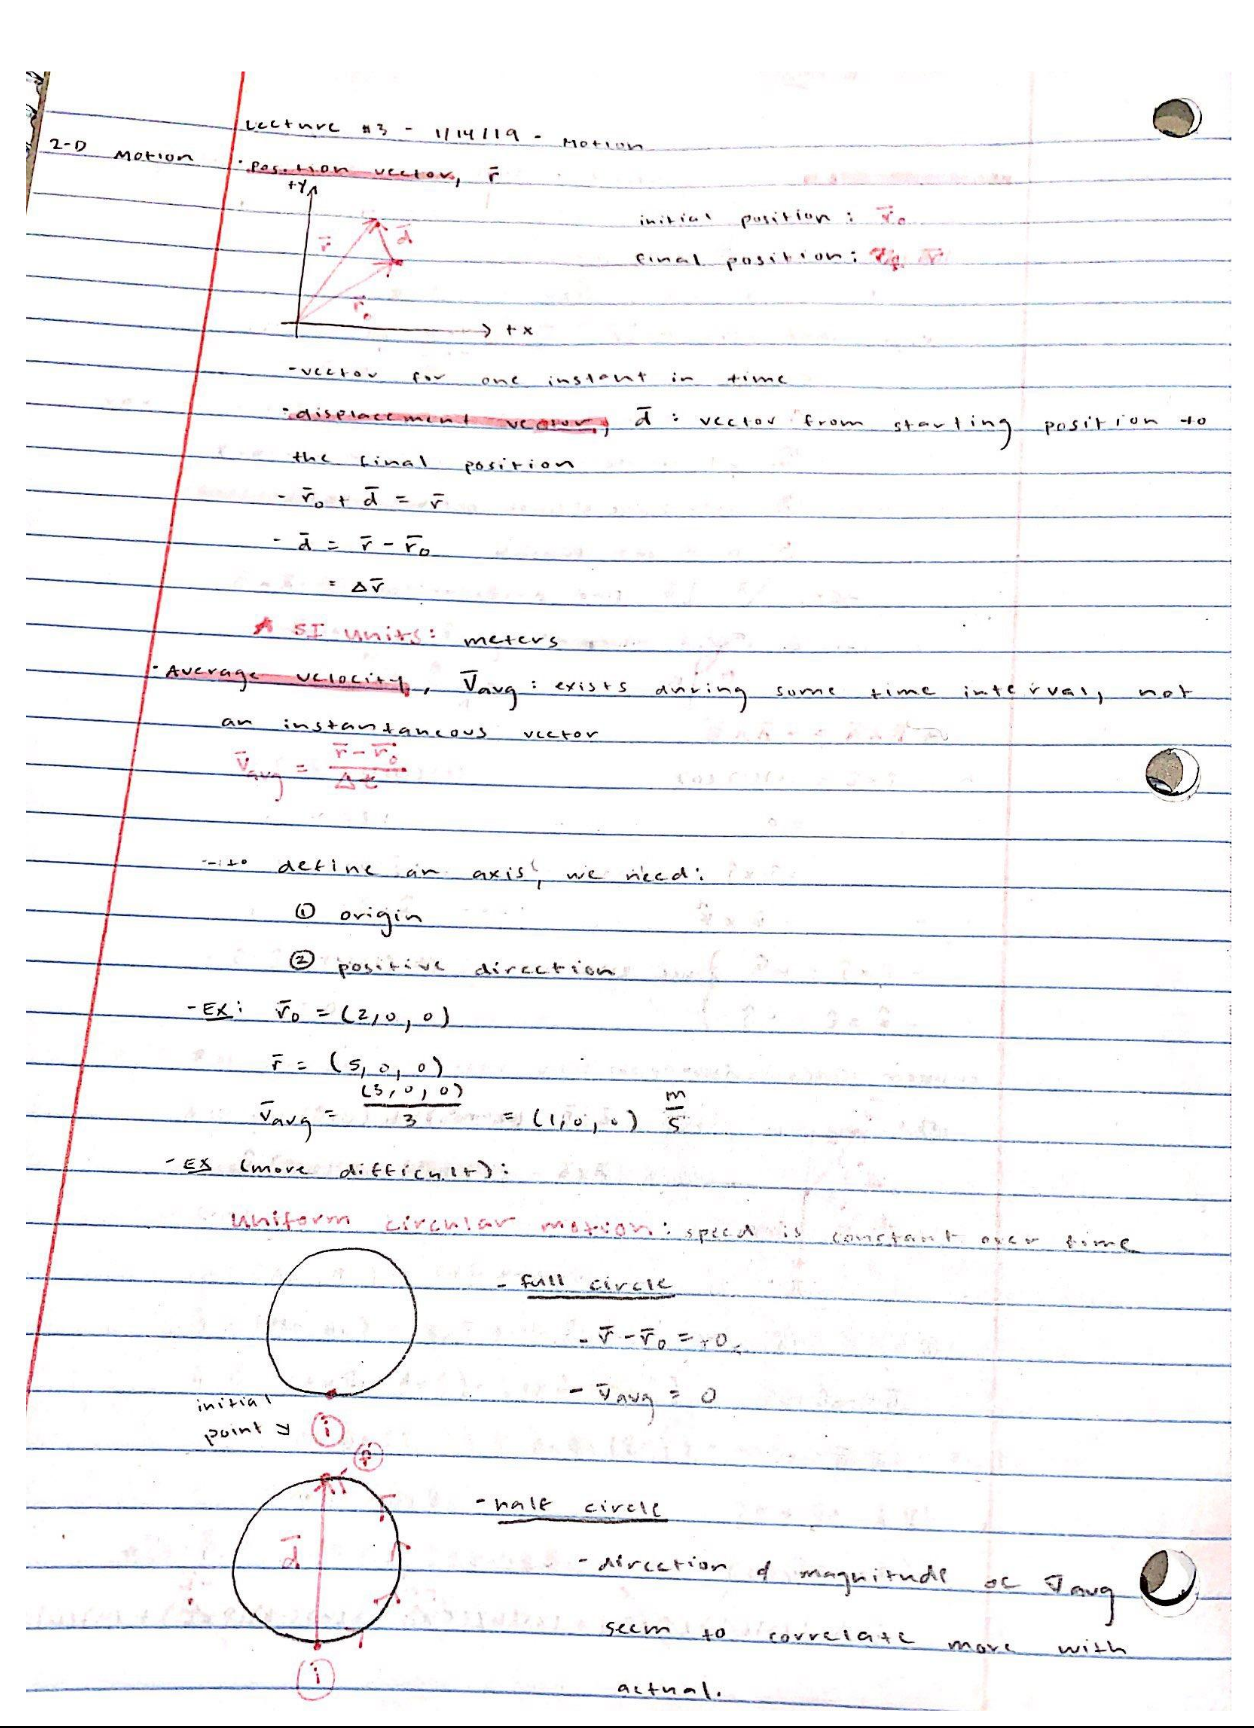 Lecture #3 - 1/14/19 - Motion
2-D Motion · position vector, r̄
+y
initial position: r̄₀
r̄ d̄
final position: r̄
r̄₀
+x
-vector for one instant in time
·displacement vector, d̄: vector from starting position to
the final position
- r̄₀ + d̄ = r̄
- d̄ = r̄ - r̄₀
= Δr̄
SI units: meters
· Average velocity, v̄avg: exists during some time interval, not
an instantaneous vector
v̄avg = (r̄ - r̄₀)/Δt
- to define an axis, we need:
① origin
② positive direction
- Ex: r̄₀ = (2,0,0)
r̄ = (5,0,0)
v̄avg = (3,0,0)/3 = (1,0,0) m/s
- Ex (more difficult):
Uniform circular motion: speed is constant over time
- full circle
- r̄ - r̄₀ = 0
- v̄avg = 0
initial
point ↘ i
f
- half circle
d̄
- direction & magnitude of v̄avg
seem to correlate more with
i
actual.